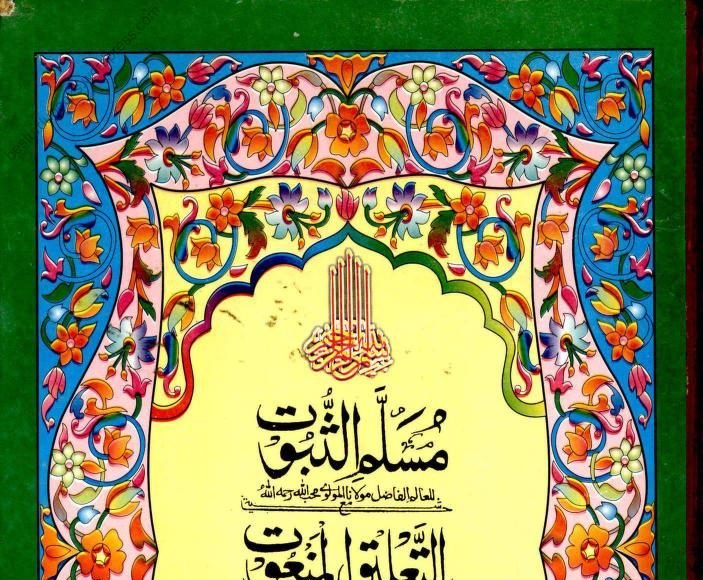 بسم الله الرحمن الرحيم
مُسَلَّمِ الثُّبُوْت
للعالم الفاضل مولانا المولوي محب الله رحمه الله
مع
حاشية
التَّعليق المنعوت